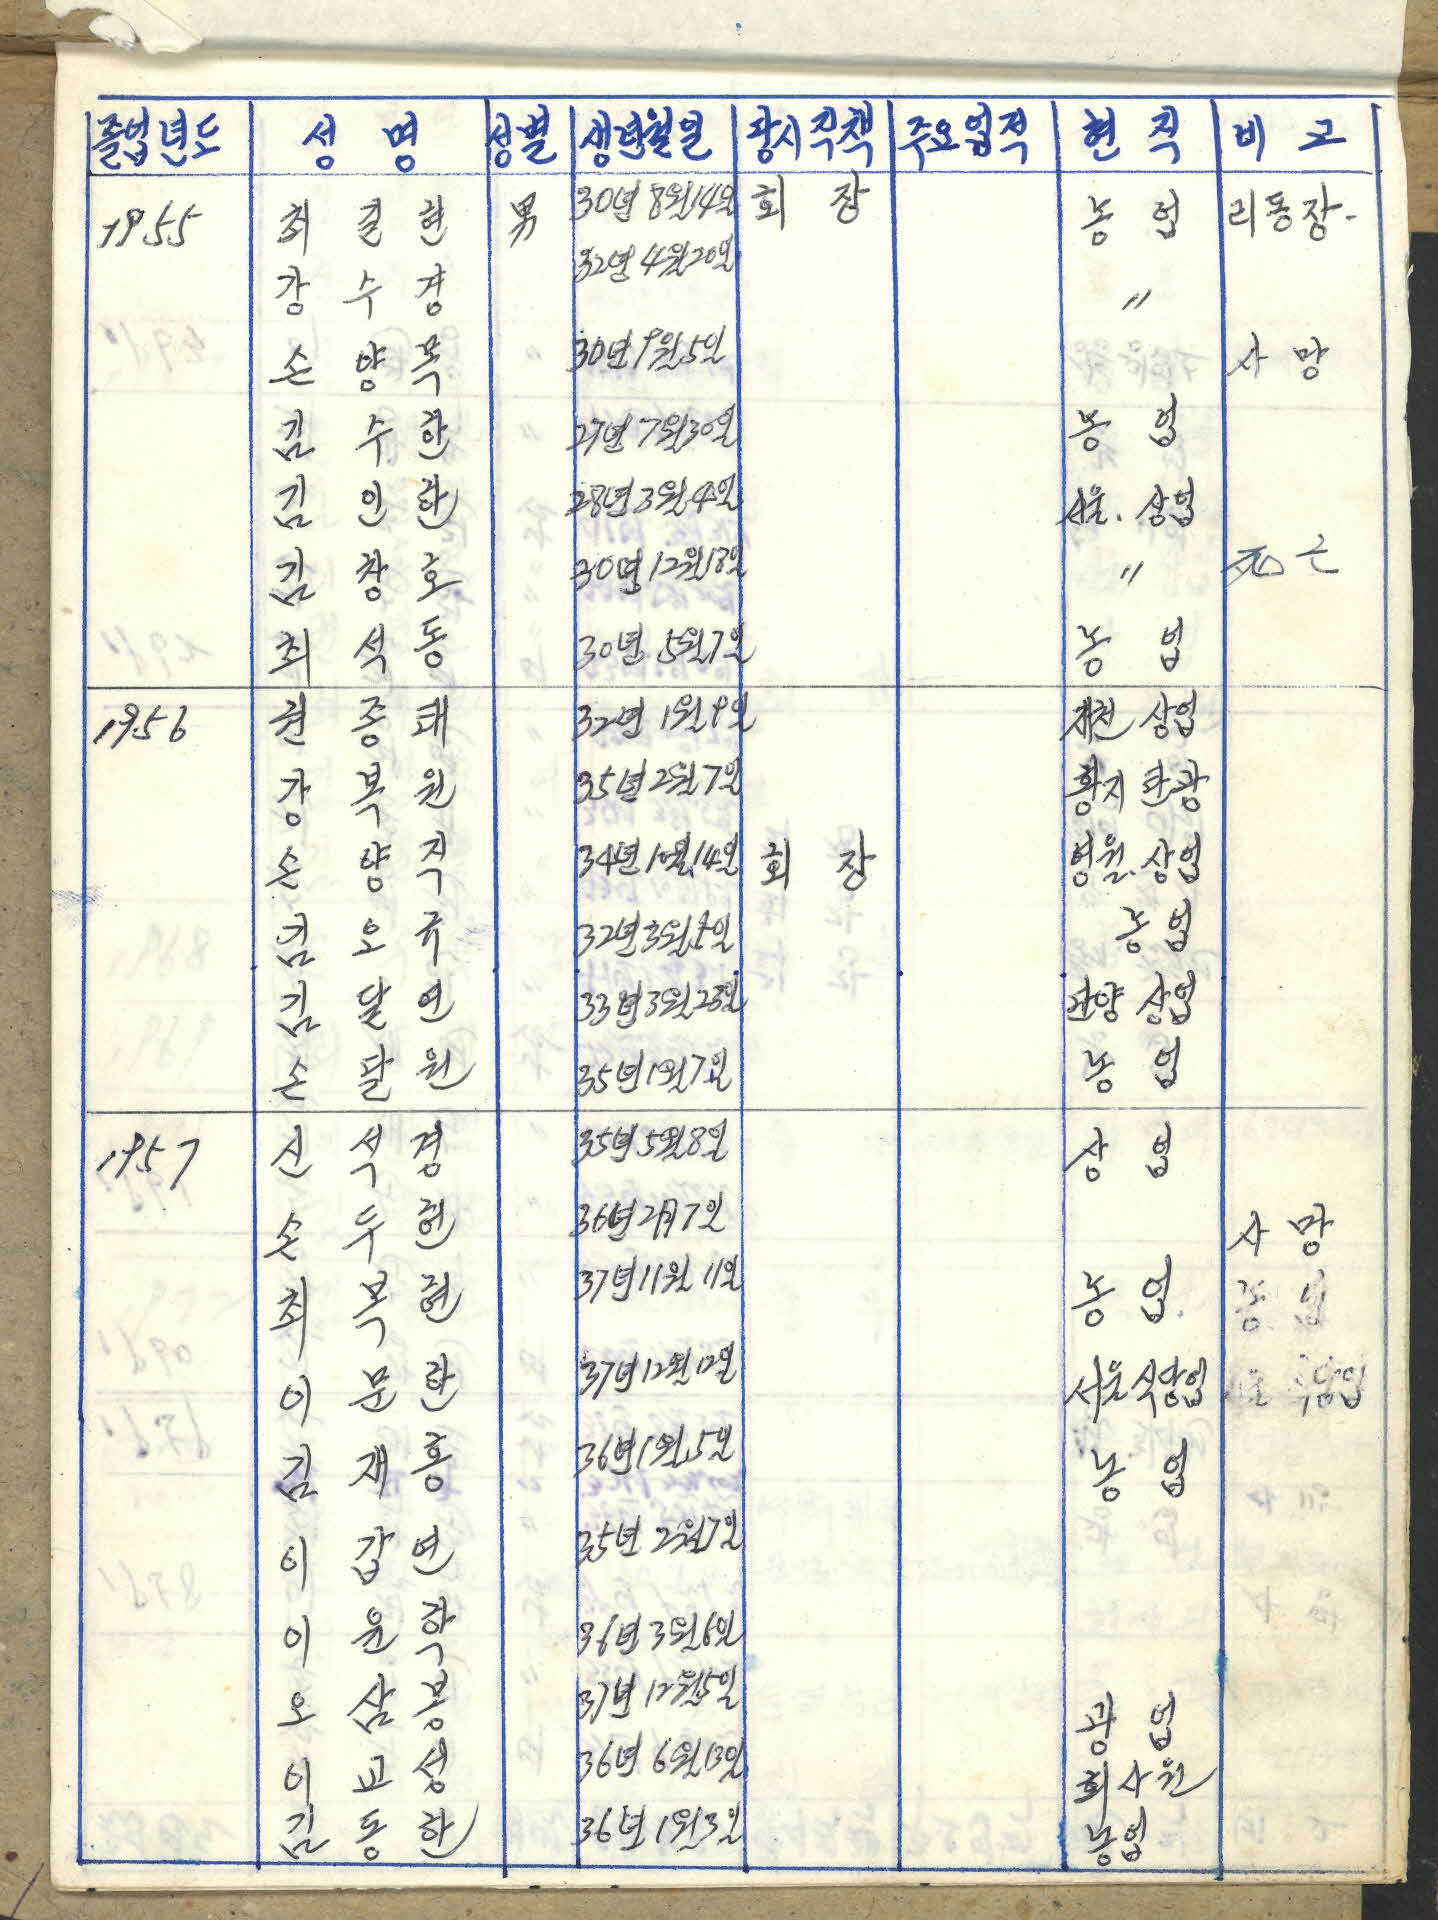 졸업년도 성명 성별 생년월일 당시직책 주요업적 현직 비고
1955 최길현 男 30년 8월 14일 회장 농업 리동장.
강수경 32년 4월 20일 〃
손양목 30년 9월 5일 사망
김수한 27년 7월 30일 농업
김인한 28년 3월 4일 서울. 상업
김창호 30년 12월 18일 〃 死亡
최석동 30년 5월 7일 농업
1956 권종태 32년 1월 9일 제천 상업
강복원 35년 2월 7일 황지 탄광
손양직 34년 10월 14일 회장 영월. 상업
김오규 32년 3월 1일 농업
김달연 33년 3월 23일 단양 상업
손달원 35년 1월 7일 농업
1957 신석경 35년 5월 8일 상업
손두현 36년 2月 7일 사망
최복현 37년 11월 11일 농업.
이문한 37년 12월 12일 서울 식당업
김재홍 36년 1월 5일 농업
이갑연 35년 2월 7일
이윤학 36년 3월 6일
오삼봉 37년 12월 5일 광업
이교성 36년 6월 13일 회사원
김동한 36년 1월 3일 농업